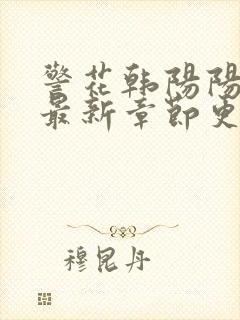 警花韩阳阳
最新章节更
穆昆丹